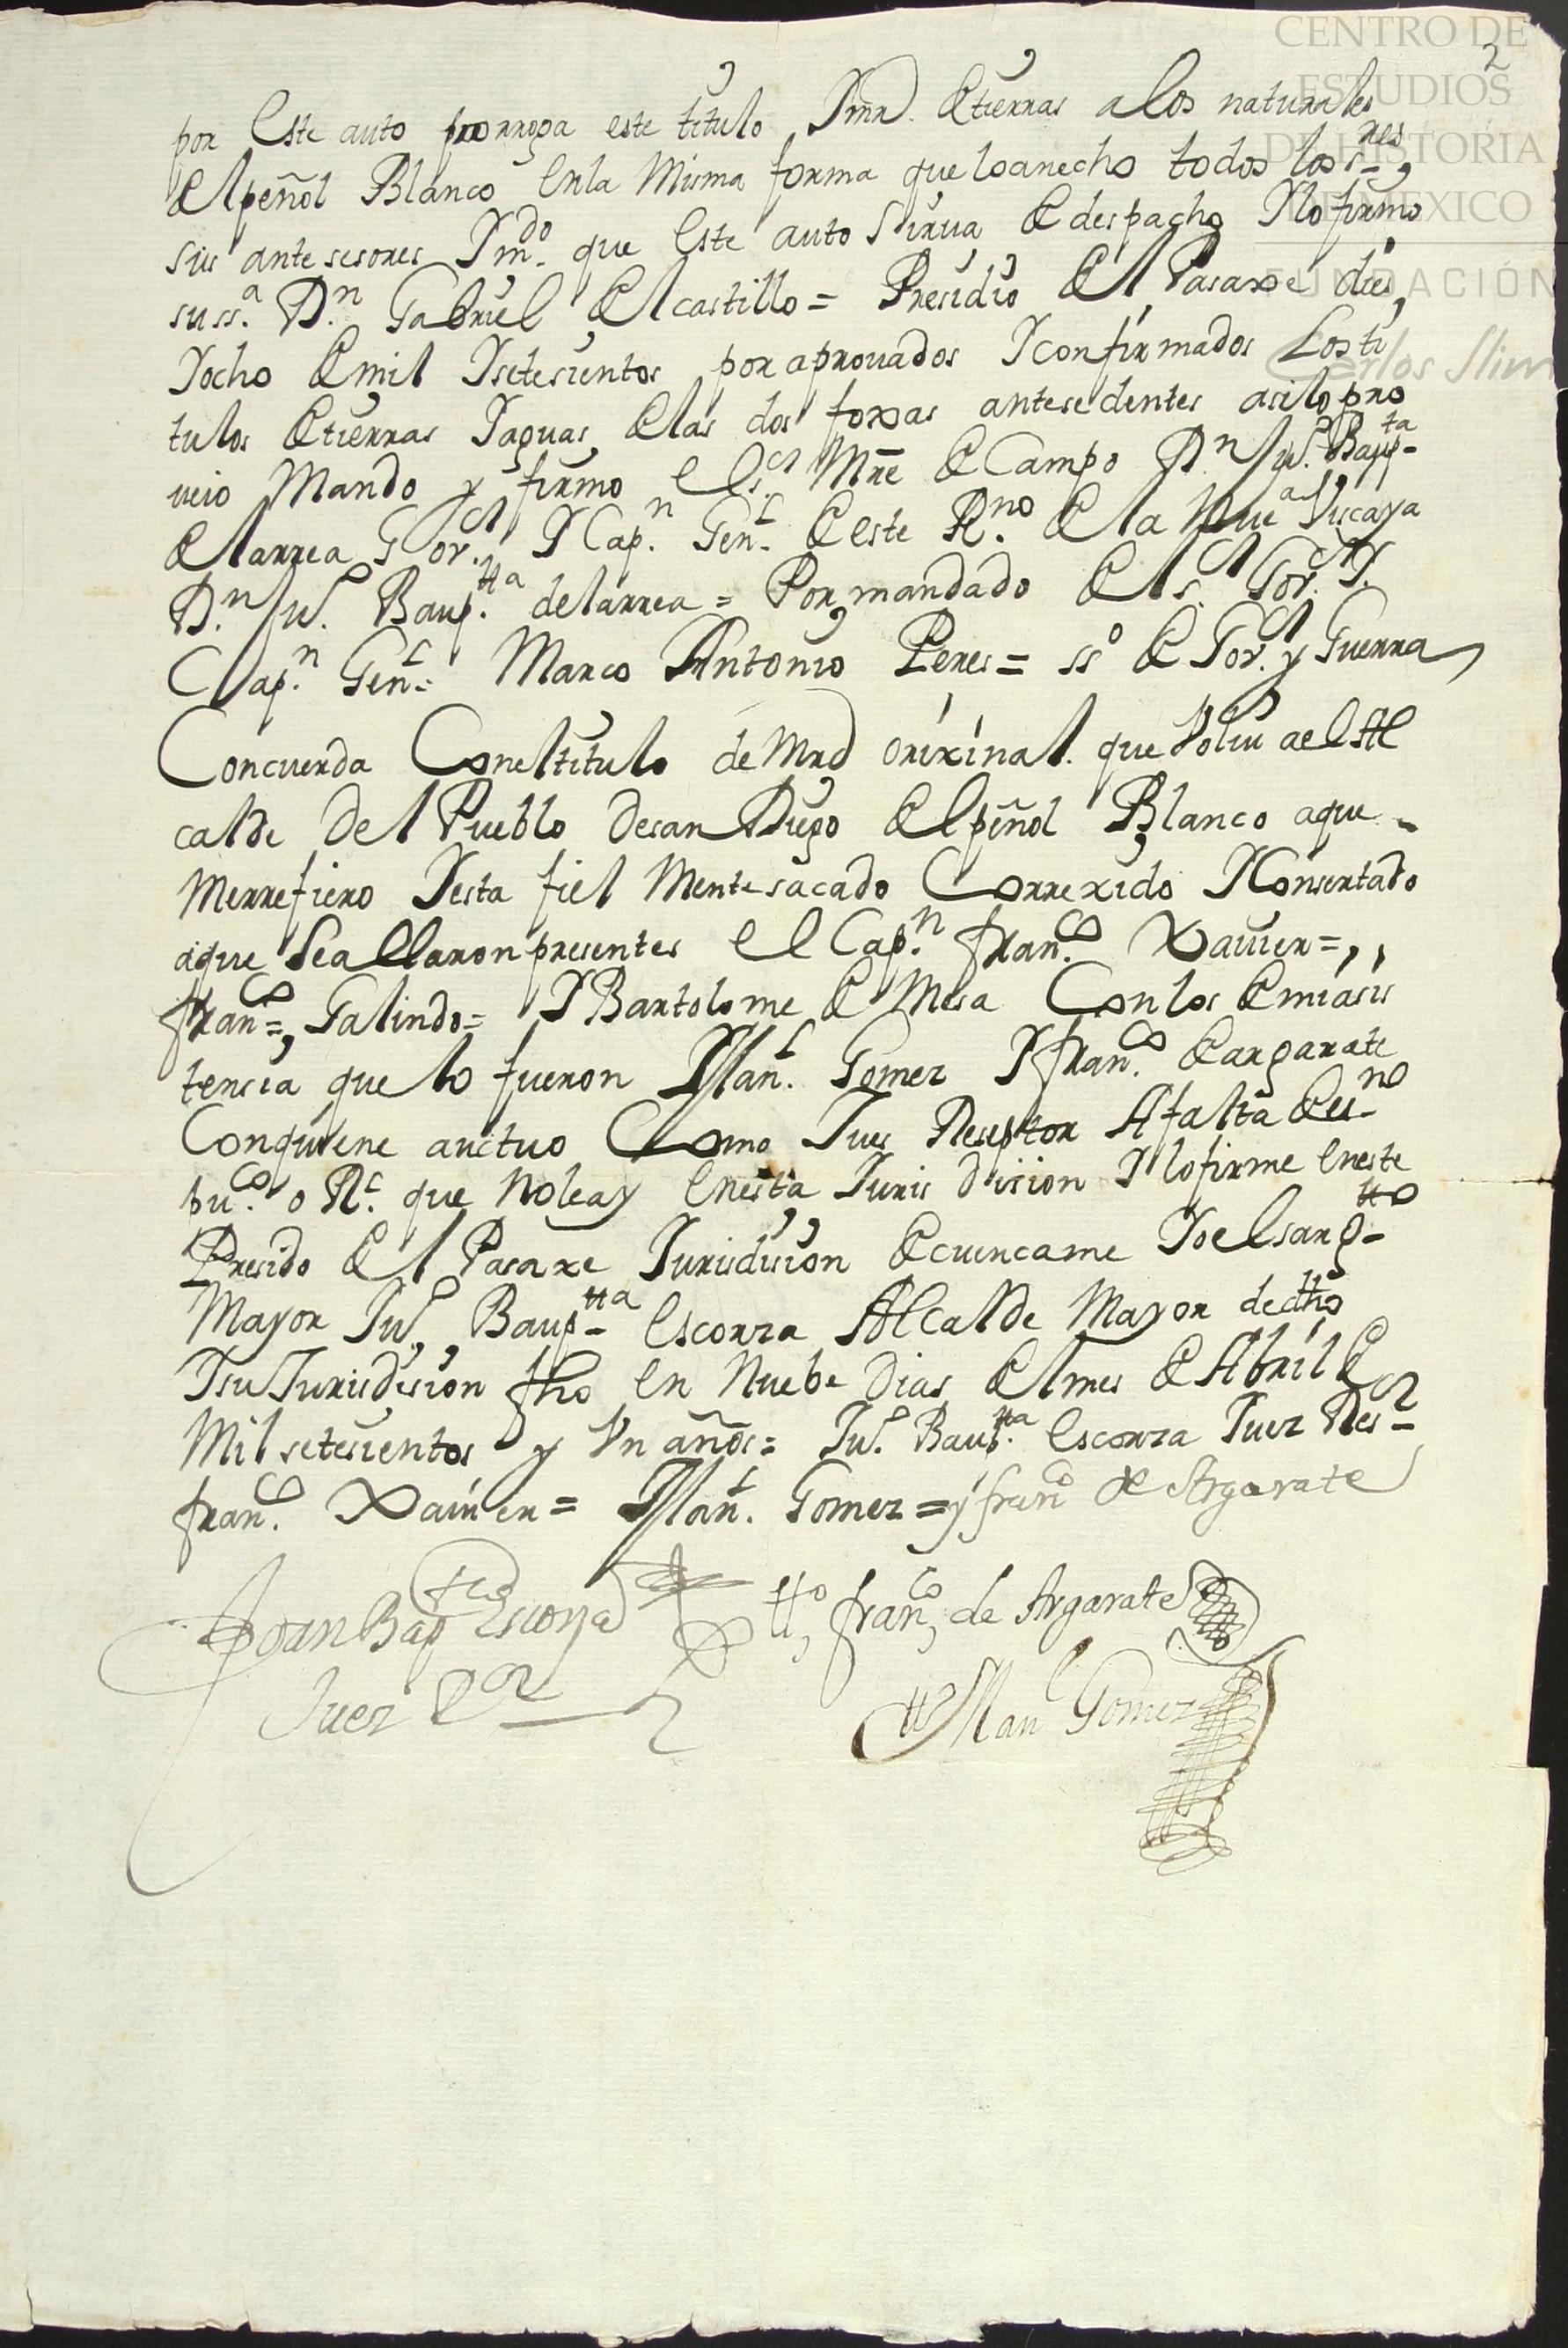 CENTRO DE
ESTUDIOS
DE HISTORIA
DE MEXICO
FUNDACIÓN
Carlos Slim
2
por Este auto prorroga este titulo Y mrd. de tierras a los naturales
del peñol Blanco En la Misma forma que lo an echo todos los s.res
sus antesesores Y m.do que Este auto sirua de despacho Y lo firmo
su ss.a D.n Gabriel del castillo = Presidio del Pasaxe dies
Y ocho de mil Y setesientos por aprouados Y confirmados Los ti
tulos de tierras Y aguas de las dos foxas antesedentes asi lo pro
ueio Mando y firmo el s.or Mre de Campo D.n Ju.o Baup.ta
de larrea Gor.or Y Cap.n Gen.l de este R.no de la Nue.a Viscaya
D.n Ju.o Baup.tta de larrea = Por mandado del s.or Gor.or Y
Cap.n Gen.l Marco Antonio Peres = ss.o de Gor.or y Guerra
Concuerda Con el titulo de Mrd orixinal que Volui a el Al
calde Del Pueblo de san Diego del peñol Blanco a que
Me rrefiero Y esta fiel Mente sacado Correxido Y Consertado
a que se allaron presentes el Cap.n fran.co Xauier =
fran.co Galindo = Y Bartolome de Mesa Con los de mi asis
tensia que lo fueron Man.l Gomez Y fran.co de argarate
Con quiene auctuo Como Jues Reseptor A falta de es.no
pu.co o R.l que No le ay En esta Jurisdision Y lo firme En este
Presido del Pasaxe Jurisdision de cuencame Yo el sarg.tto
Mayor Ju.o Baup.tta Escorza Alcalde Mayor de dtho
Y su Jurisdision fho En Nuebe Dias del mes de Abril de
Mil setesientos y Vn años = Ju.o Baup.tta Escorza Juez Res.or
fran.co Xauier = Man.l Gomez = y fran.co de Argarate
Joan Bap.ta Escorza
tt.o fran.co de Argarate
Juez R.or
tt.o Man.l Gomez